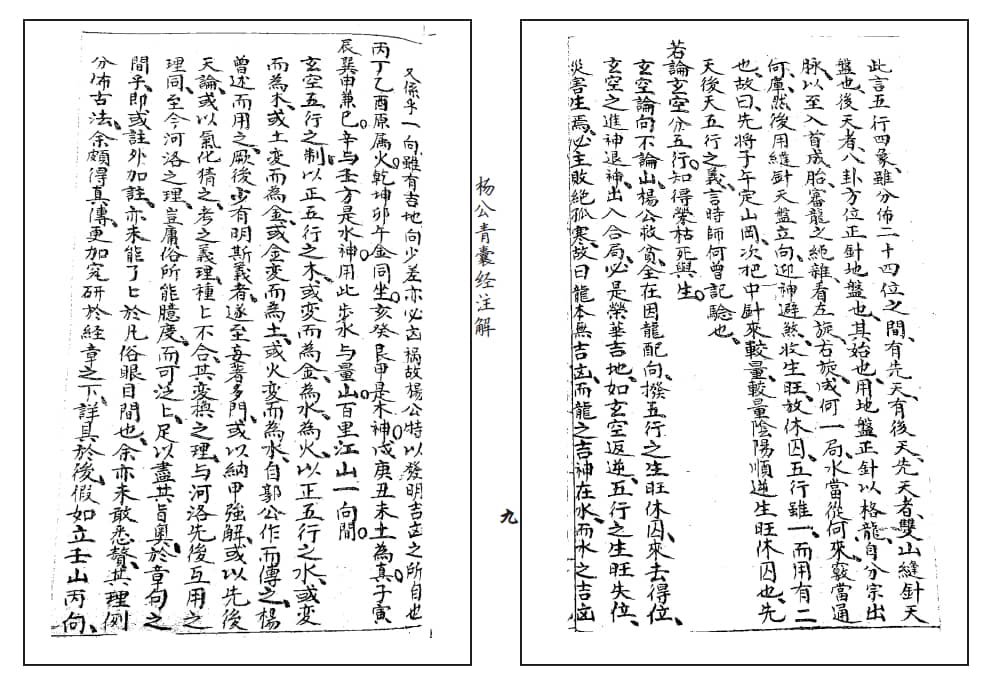 此言五行四象、雖分佈二十四位之間、有先天有後天、先天者、雙山縫針天
盤也、後天者、八卦方位正針地盤也、其始也、用地盤正針以格龍、自分宗出
脉、以至入首成胎、審龍之純雜、看左旋右旋、成何一局、水當從何來、竅當通
何庫、然後用縫針天盤立向、迎神避煞、收生旺、放休囚、五行雖一、而用有二
也、故曰、先將子午定山岡、次把中針來較量、較量陰陽順逆生旺休囚也、先
天後天五行之義、言時師何曾記驗也、
若論玄空分五行。知得榮枯死與生。
玄空論向不論山、楊公救貧、全在因龍配向、撥五行之生旺休囚、來去得位、
玄空之進神退神、出入合局、必是榮華吉地、如玄空返逆、五行之生旺失位、
災害生焉、必主敗絕孤寒、故曰、龍本無吉凶、而龍之吉神在水、而水之吉凶
杨公青囊经注解
九
又係乎一向、雖有吉地、向少差、亦必凶禍、故楊公特以發明吉凶之所自也
丙丁乙酉原属火。乾坤卯午金同坐。亥癸艮甲是木神。戌庚丑未土為真。子寅
辰巽申兼巳。辛与壬方是水神。用此步水与量山。百里江山一向間。
玄空五行之制、以正五行之木、或変而為金、為水、為火、以正五行之水、或変
而為木、或土変而為金、或金変而為土、或火変而為水、自郭公作而傳之、楊
曾述而用之、厥後少有明斯義者、遂至妄著多門、或以納甲強解、或以先後
天論、或以氣化猜之、考之義理、種〻不合、其変換之理、与河洛先後互用之
理同、至今河洛之理、豈庸俗所能臆度、而可泛〻、足以盡其旨奥、於章句之
間乎、即或註外加註、亦未能了〻於凡俗眼目間也、余亦未敢悉贅、其理例
分佈古法、余頗得真傳、更加究研於経章之下、詳具於後、假如立壬山丙向、